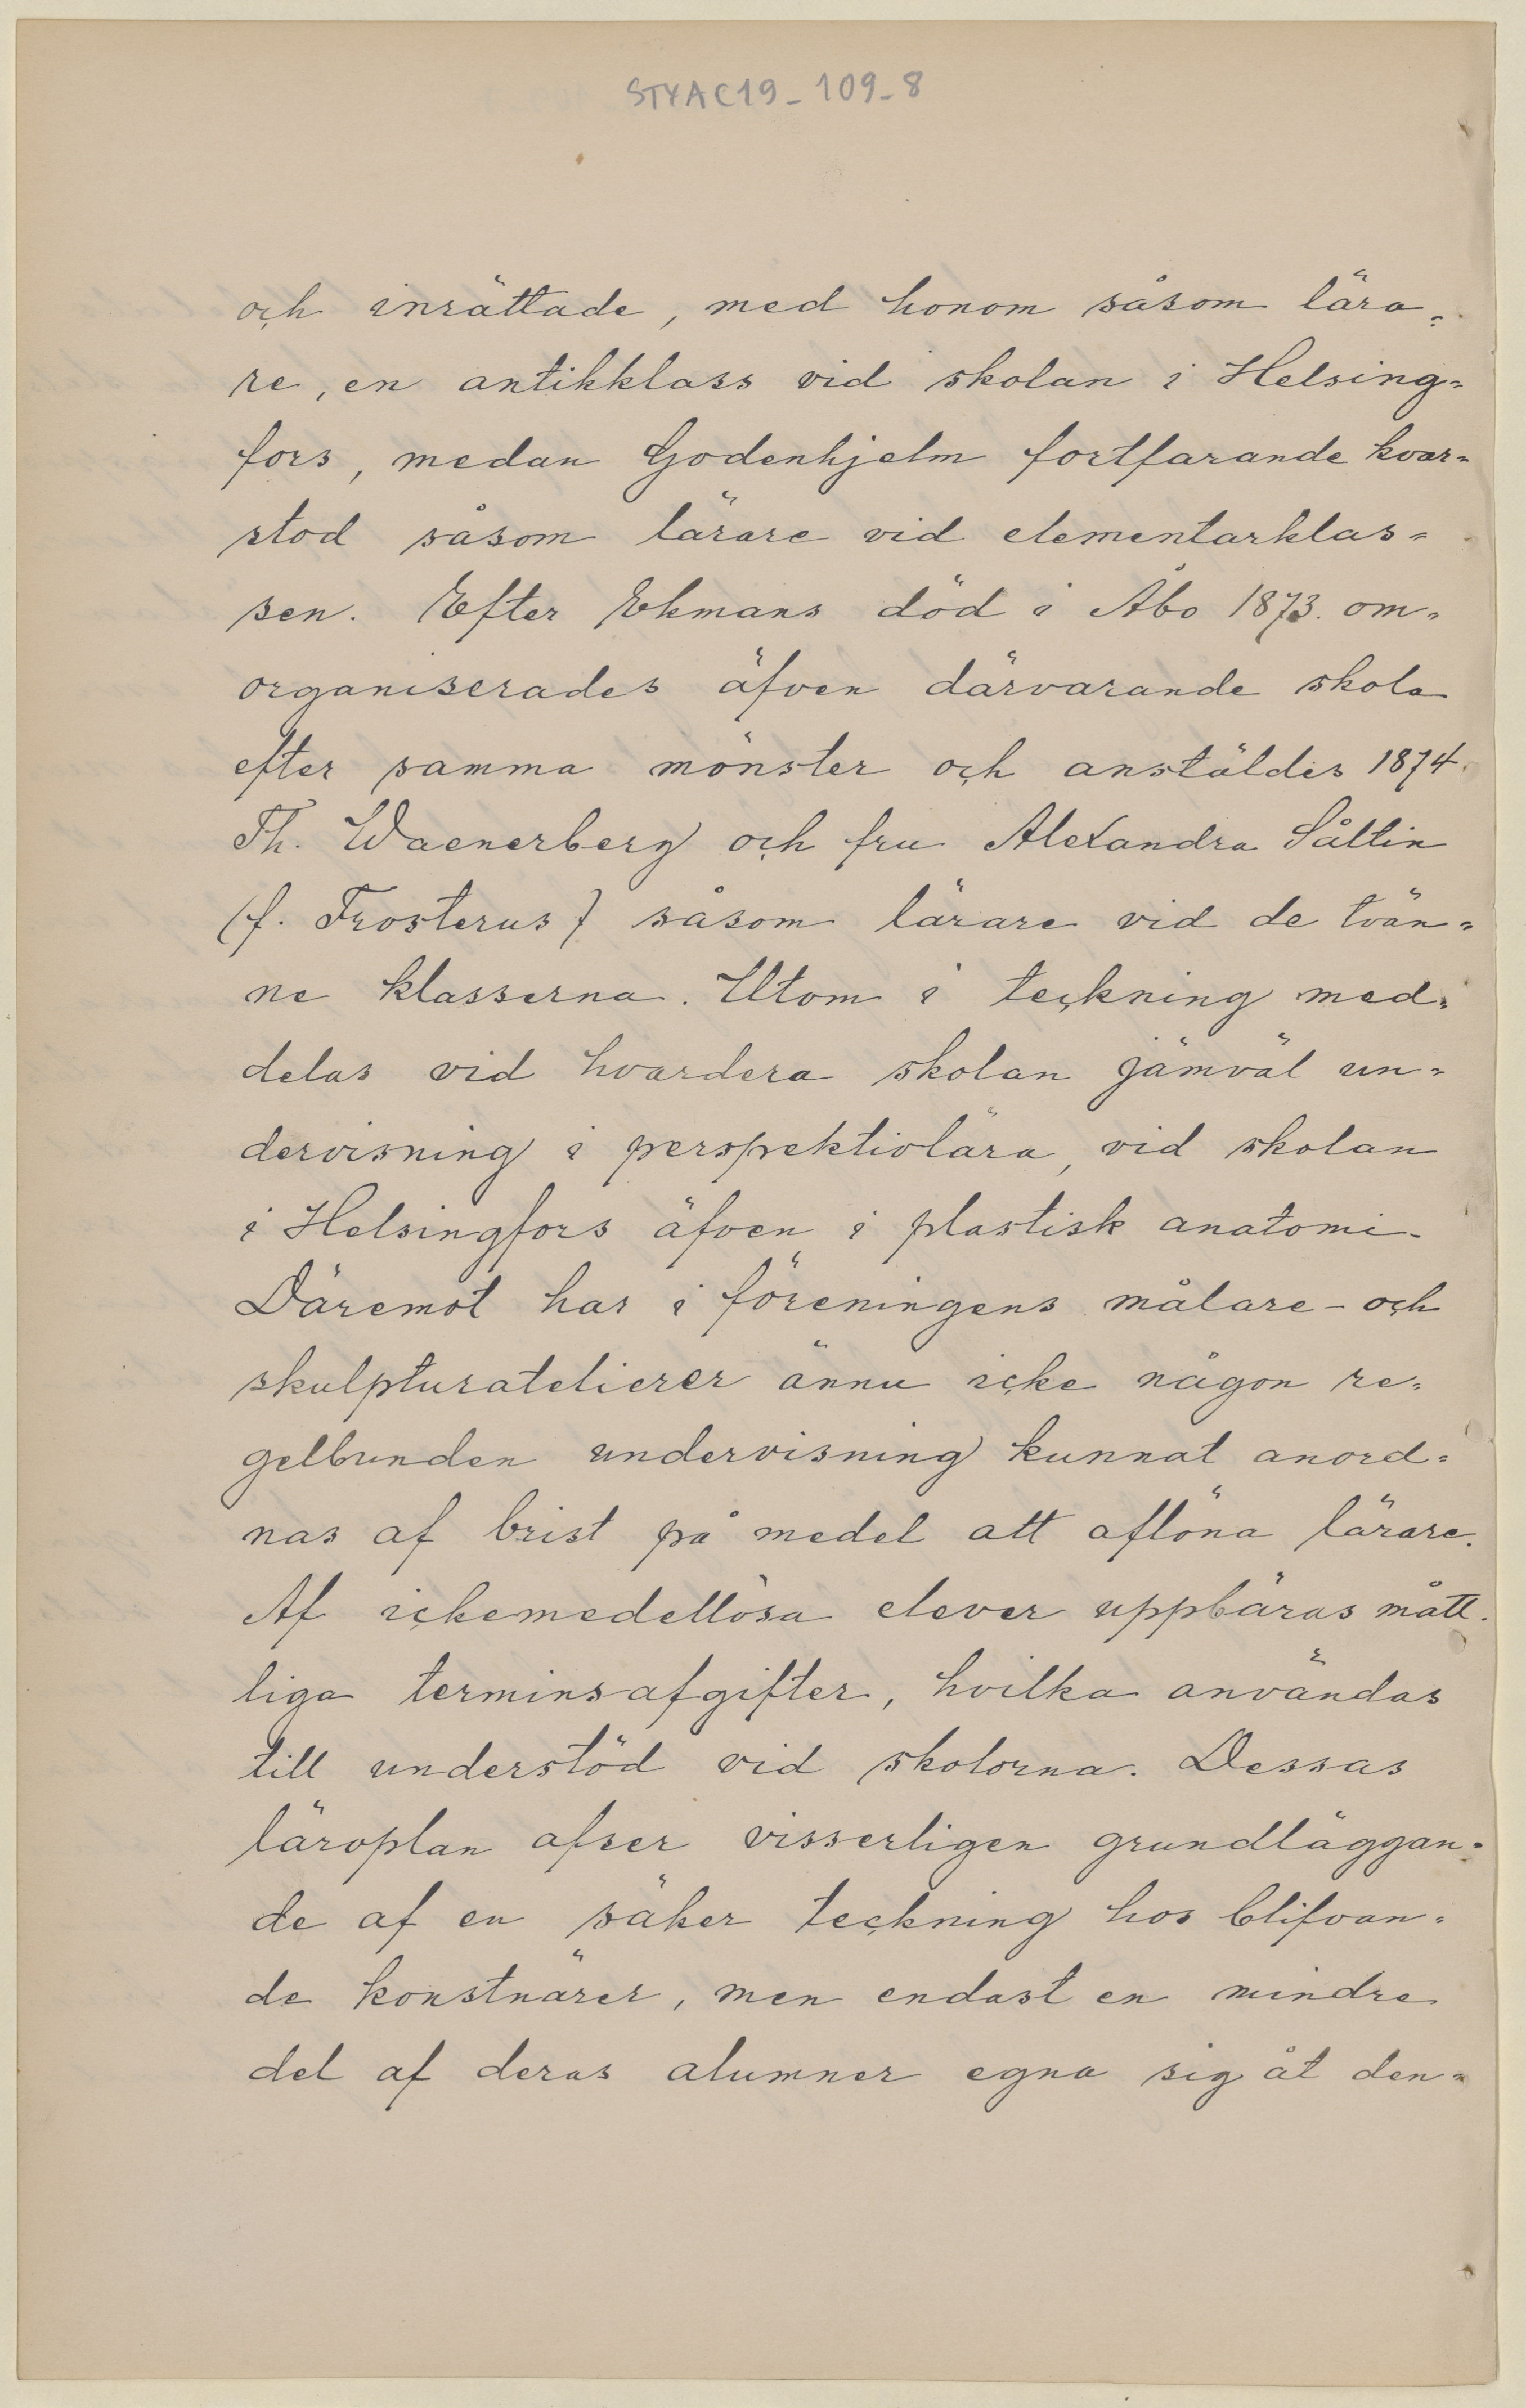 STYAC19_109_8
och inrättade, med honom såsom lära=
re, en antikklass vid skolan i Helsing=
fors, medan Godenhjelm fortfarande kvar=
stod såsom lärare vid elementarklas=
sen. Efter Ekmans död i Åbo 1873. om=
organiserades äfven därvarande skola
efter samma mönster och anstäldes 1874.
Th. Waenerberg och fru Alexandra Såltin
(f. Frosterus) såsom lärare vid de tvän=
ne klasserna. Utom i teckning med=
delas vid hvardera skolan jämväl un=
dervisning i perspektivlära, vid skolan
i Helsingfors äfven i plastisk anatomi.
Däremot har i föreningens målare- och
skulpturatelierer ännu icke någon re=
gelbunden undervisning kunnat anord=
nas af brist på medel att aflöna lärare.
Af ickemedellösa elever uppbäras mått=
liga terminsafgifter, hvilka användas
till understöd vid skolorna. Dessas
läroplan afser visserligen grundläggan=
de af en säker teckning hos blifvan=
de konstnärer, men endast en mindre
del af deras alumner egna sig åt den=